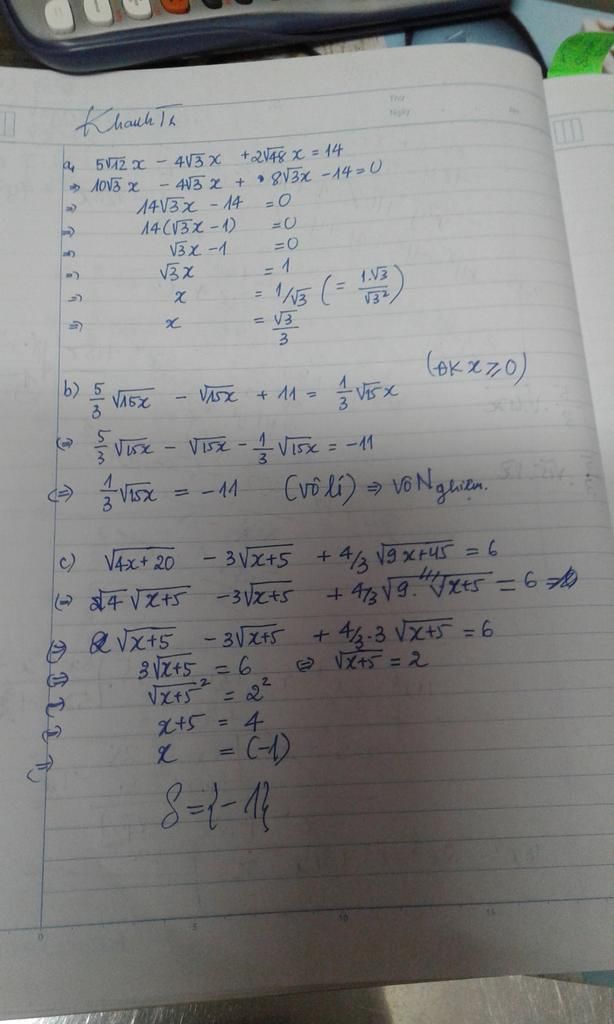 Khanh Tr
Thứ
Ngày No.
a, 5√12 x - 4√3 x + 2√48 x = 14
⇒ 10√3 x - 4√3 x + 8√3x - 14 = 0
⇒ 14√3x - 14 = 0
⇒ 14(√3x - 1) = 0
⇒ √3x - 1 = 0
⇒ √3x = 1
⇒ x = 1/√3 (= 1.√3/√3²)
⇒ x = √3/3
(ĐK x ≥ 0)
b) 5/3 √15x - √15x + 11 = 1/3 √15x
⇔ 5/3 √15x - √15x - 1/3 √15x = -11
⇔ 1/3 √15x = -11 (vô lí) ⇒ vô Nghiệm.
c) √4x+20 - 3√x+5 + 4/3 √9x+45 = 6
⇔ √4 √x+5 - 3√x+5 + 4/3 √9. √x+5 = 6
⇔ 2√x+5 - 3√x+5 + 4/3.3 √x+5 = 6
⇔ 3√x+5 = 6 ⇔ √x+5 = 2
⇔ √x+5² = 2²
⇔ x+5 = 4
⇔ x = (-1)
S = {-1}
0 5 10 15